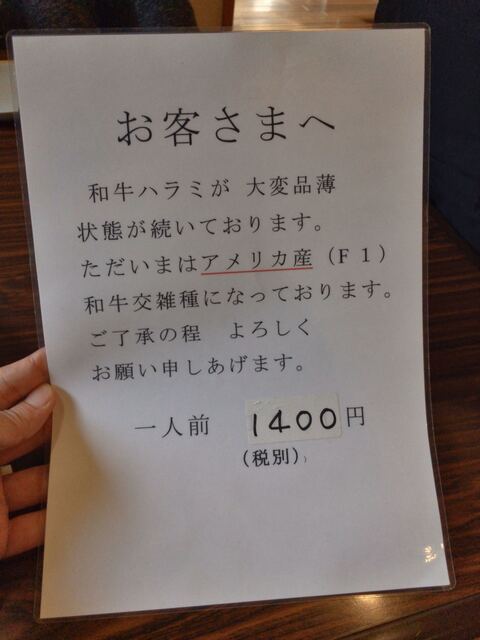 お客さまへ
和牛ハラミが 大変品薄
状態が続いております。
ただいまはアメリカ産（F1）
和牛交雑種になっております。
ご了承の程　よろしく
お願い申しあげます。
一人前　1400円
（税別）